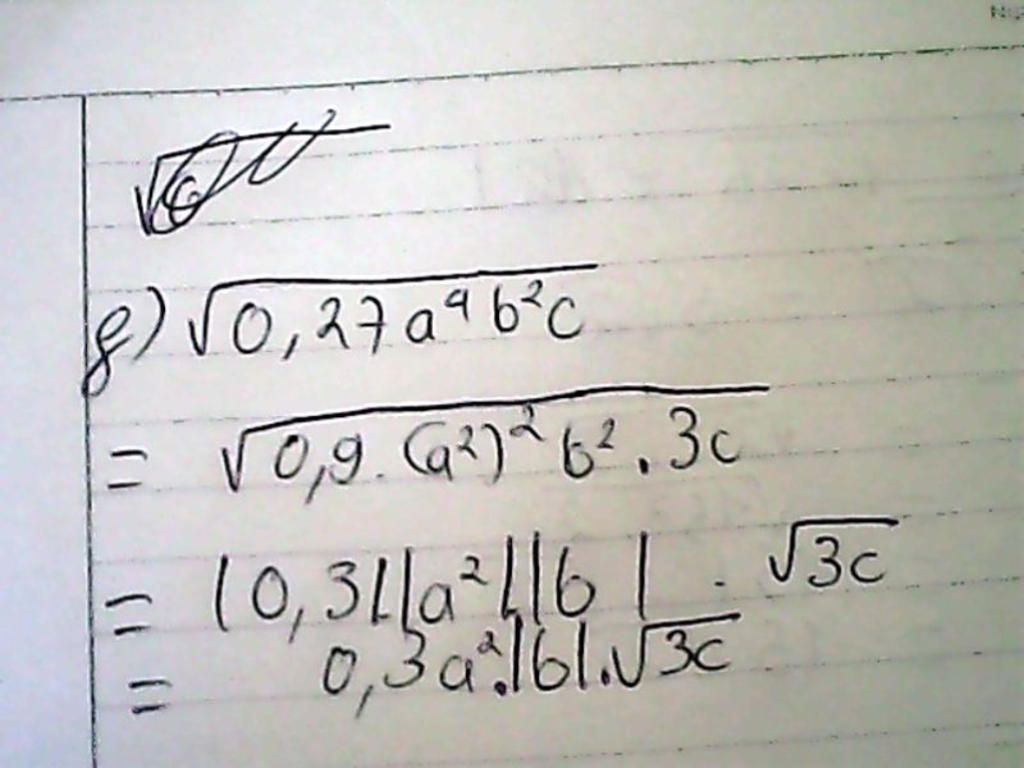 g) √0,27a⁴b²c
= √0,9.(a²)²b².3c
= |0,3||a²||b| . √3c
= 0,3a².|b|.√3c